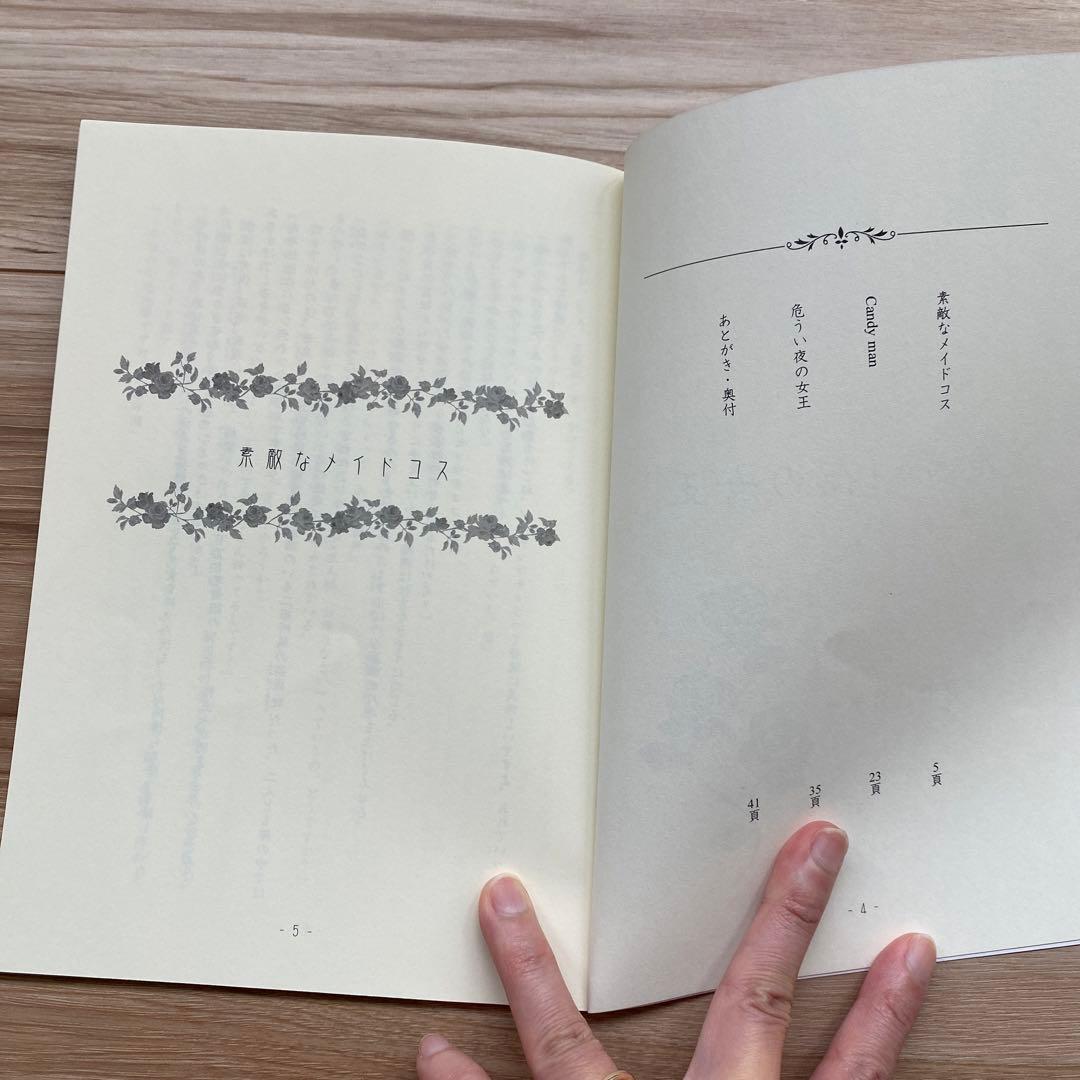 素敵なメイドコス
5頁
Candy man
23頁
危うい夜の女王
35頁
あとがき・奥付
41頁
- 4 -
素敵なメイドコス
- 5 -